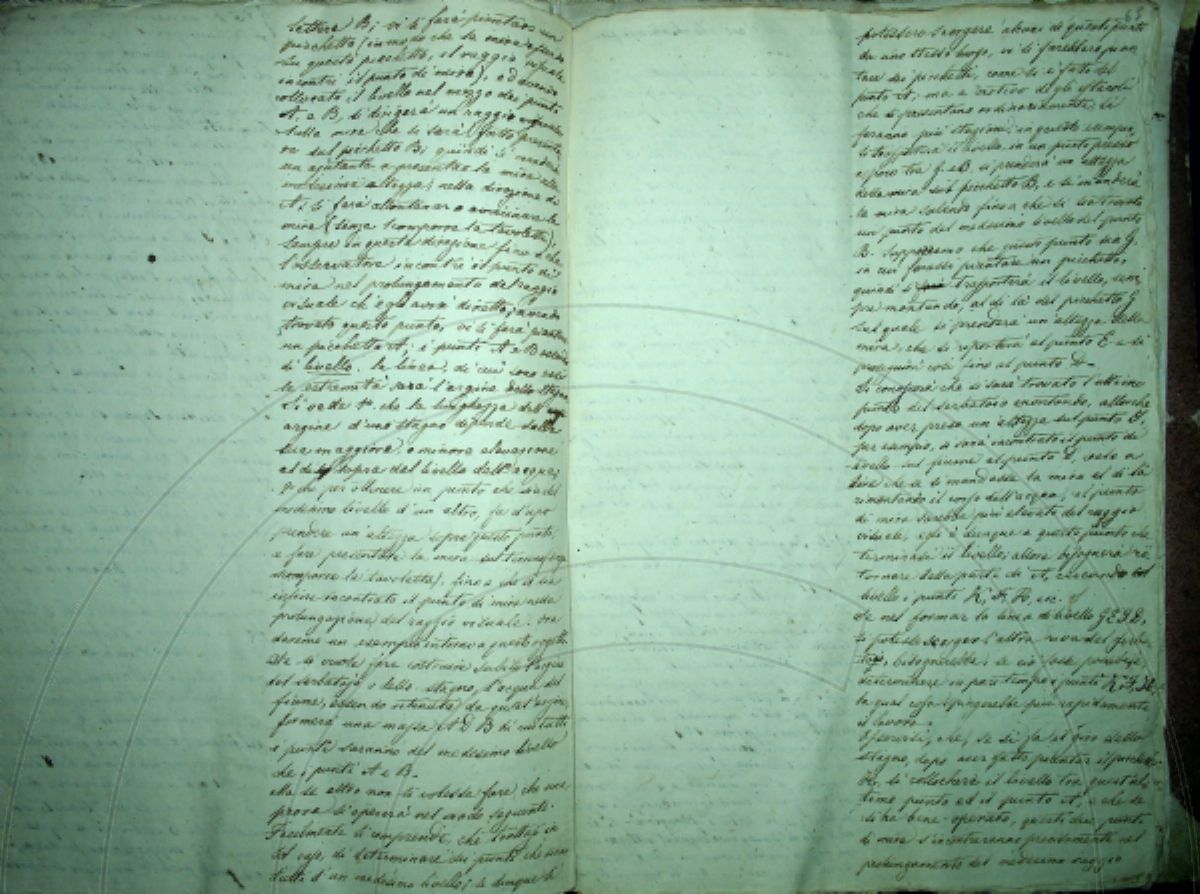 lettera B; vi si farà piantare un
picchetto (in modo che la mira essendo
su questo picchetto, il raggio visuale
incontri il punto di mira), ed avendo
collocato il livello nel mezzo dei punti
A, e B, si dirigerà un raggio
sulla mira che si sarà fatta presenta-
re sul picchetto B; quindi si manderà
un ajutante a presentar la mira alla
medesima altezza; nella direzione di
A; si farà allontanar o avvicinare la
mira (senza scomporre la tavoletta),
sempre in questa direzione fino a che
l'osservatore incontri il punto di
mira nel prolungamento del raggio
visuale ch'egli avrà diretto; avendo
trovato questo punto, vi si farà piantare
un picchetto A; i punti A e B saranno
di livello. la linea, di cui sono
le estremità sarà l'argine dello stagno
Si vede 1°. che la lunghezza dell'
argine d'uno stagno dipende dalla
sua maggiore, o minore elevazione
al di sopra del livello dell'acqua;
2° che per ottenere un punto che sia del
medesimo livello d'un altro, fa d'uopo
prendere un'altezza sopra questo punto,
e fare presentare la mira sul terreno (senza
scomporre la tavoletta), fino a che si sia
infine incontrato il punto di mira nella
prolungazione del raggio visuale. Ora
daremo un esempio intorno a questo oggetto
Se si vuole fare costruire subito l'argine
del serbatojo o dello stagno, l'acqua del
fiume, essendo ritenuta da quest'argine,
formerà una massa A D B di cui tutti
i punti saranno del medesimo livello
de' punti A e B.
Ma se altro non si volesse fare che una
prova si opererà nel modo seguente.
Facilmente si comprende, che trattasi in
tal caso, di determinare dei punti che siano
tutti d'un medesimo livello; se dunque si
63
potessero scorgere alcuni di questi punti
da uno stesso luogo, vi si farebbero pian-
tare dei picchetti, come si è fatto del
punto A; ma a motivo degli ostacoli
che si presentano ordinariamente, si
faranno più stazioni; in questo esempio,
si trasporterà il livello in un punto preso
a poco tra G e B. si prenderà un'altezza
della mira sul picchetto B, e si manderà
la mira salendo fino a che si sia trovato
un punto del medesimo livello del punto
B. Supponiamo che questo punto sia G.
in cui farassi piantare un picchetto,
quindi si trasporterà il livello, sem-
pre montando, al di là del picchetto G
sul quale si prenderà un'altezza della
mira, che si riporterà al punto E e si
proseguirà così fino al punto D.
Si conoscerà che si sarà trovato l'ultimo
punto del serbatojo montando, allorchè
dopo aver preso un'altezza sul punto E,
per esempio, si sarà incontrato il punto di
livello sul fiume al punto D, vale a
dire che se si mandasse la mira al di là
rimontando il corso dell'acqua, il punto
di mira sarebbe più elevato del raggio
visuale, egli è dunque a questo punto che
terminasi il livello, allora bisognerà ri-
tornare dalla parte di A, cercando col
livello i punti K, etc.
Se nel formar la linea di livello
si potesse scorger l'altra riva del serba-
tojo, bisognerebbe, se ciò fosse possibile
determinare in pari tempo i punti
la qual cosa spingerebbe più rapidamente
il lavoro.
Osservisi, che, se si fa il giro dello
stagno, dopo aver fatto piantare il picchetto
si collocherà il livello tra quest'ul-
timo punto ed il punto A, e che se
si ha bene operato, questi due punti
di mira s'incontreranno precisamente nel
prolungamento del medesimo raggio